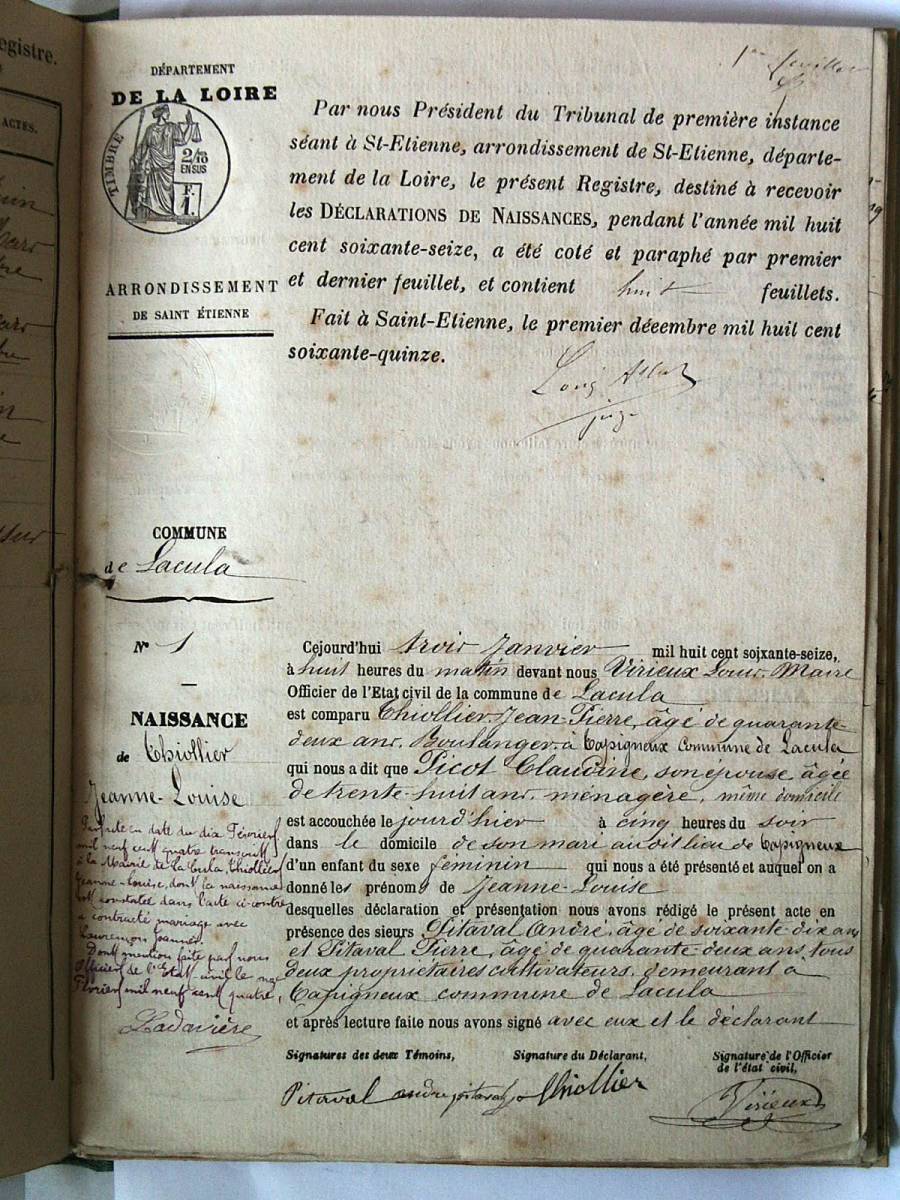 egistre.
ACTES.
DÉPARTEMENT
DE LA LOIRE
TIMBRE
2/10
EN SUS
F.
1.
ARRONDISSEMENT
DE SAINT ÉTIENNE
1er feuillet
Par nous Président du Tribunal de première instance
séant à St-Etienne, arrondissement de St-Etienne, départe-
ment de la Loire, le présent Registre, destiné à recevoir
les DÉCLARATIONS DE NAISSANCES, pendant l'année mil huit
cent soixante-seize, a été coté et paraphé par premier
et dernier feuillet, et contient huit feuillets.
Fait à Saint-Etienne, le premier décembre mil huit cent
soixante-quinze.
juge
COMMUNE
de Lacula
N° 1
NAISSANCE
de Thiollier
Jeanne-Louise
en date du dix Février
mil neuf cent quatre transcrit
à la Mairie de la Cula, Thiollier
Jeanne-Louise, dont la naissance
est constatée dans l'acte ci-contre
a contracté mariage avec
Dont mention faite par nous
Officier de l'Etat civil le
Février mil neuf cent quatre,
Cejourd'hui trois Janvier mil huit cent soixante-seize,
à huit heures du matin devant nous Virieux Louis, Maire
Officier de l'Etat civil de la commune de Lacula
est comparu Thiollier Jean-Pierre, âgé de quarante-
deux ans, Boulanger, à Capigneux Commune de Lacula
qui nous a dit que Picot Claudine, son épouse âgée
de trente-huit ans, ménagère, même domicile
est accouchée le jourd'hier à cinq heures du soir
dans le domicile de son mari audit lieu de Capigneux
d'un enfant du sexe féminin qui nous a été présenté et auquel on a
donné les prénoms de Jeanne-Louise
desquelles déclaration et présentation nous avons rédigé le présent acte en
présence des sieurs Pitaval André, âgé de soixante-dix ans
et Pitaval Pierre, âgé de quarante-deux ans, tous
deux propriétaires cultivateurs, demeurant à
Capigneux commune de Lacula
et après lecture faite nous avons signé avec eux et le déclarant
Signatures des deux Témoins, Signature du Déclarant, Signature de l'Officier
de l'état civil,
Pitaval andre pitaval Thiollier
Virieux